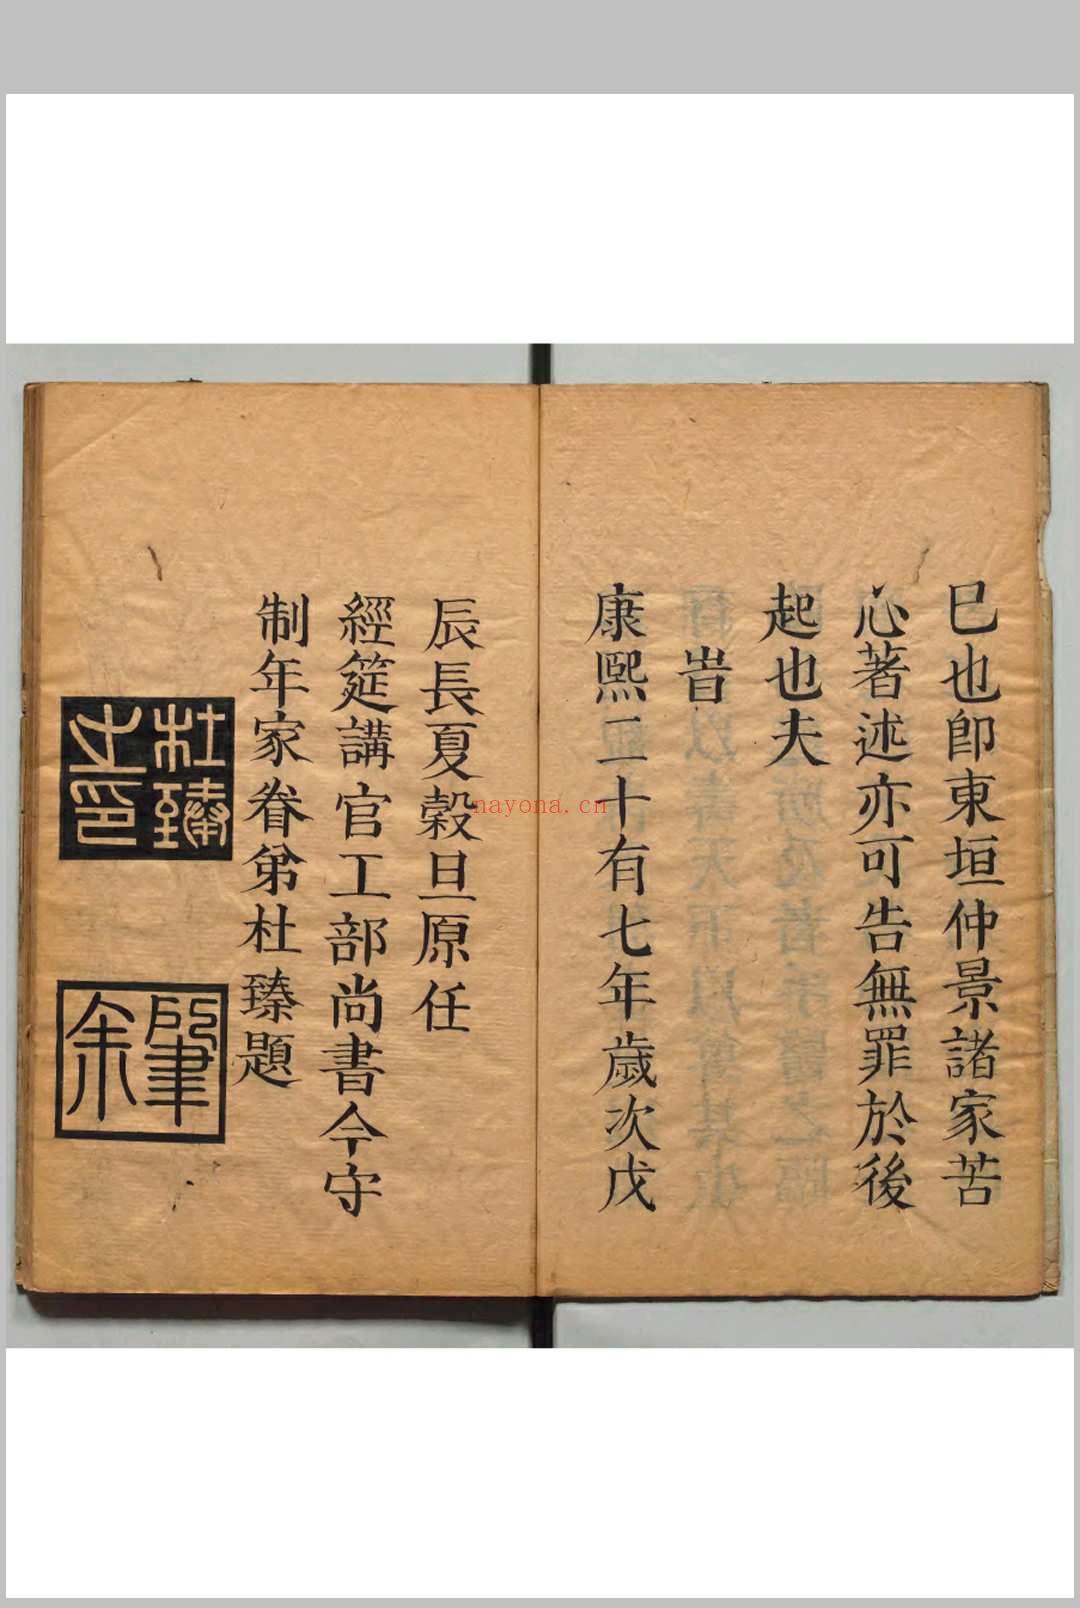 巳也卽東垣仲景諸家苦
心著述亦可告無罪於後
起也夫
旹
康熙二十有七年歲次戊
辰長夏穀旦原任
經筵講官工部尚書今守
制年家眷弟杜臻題
杜臻之印
肇余
nayona.cn